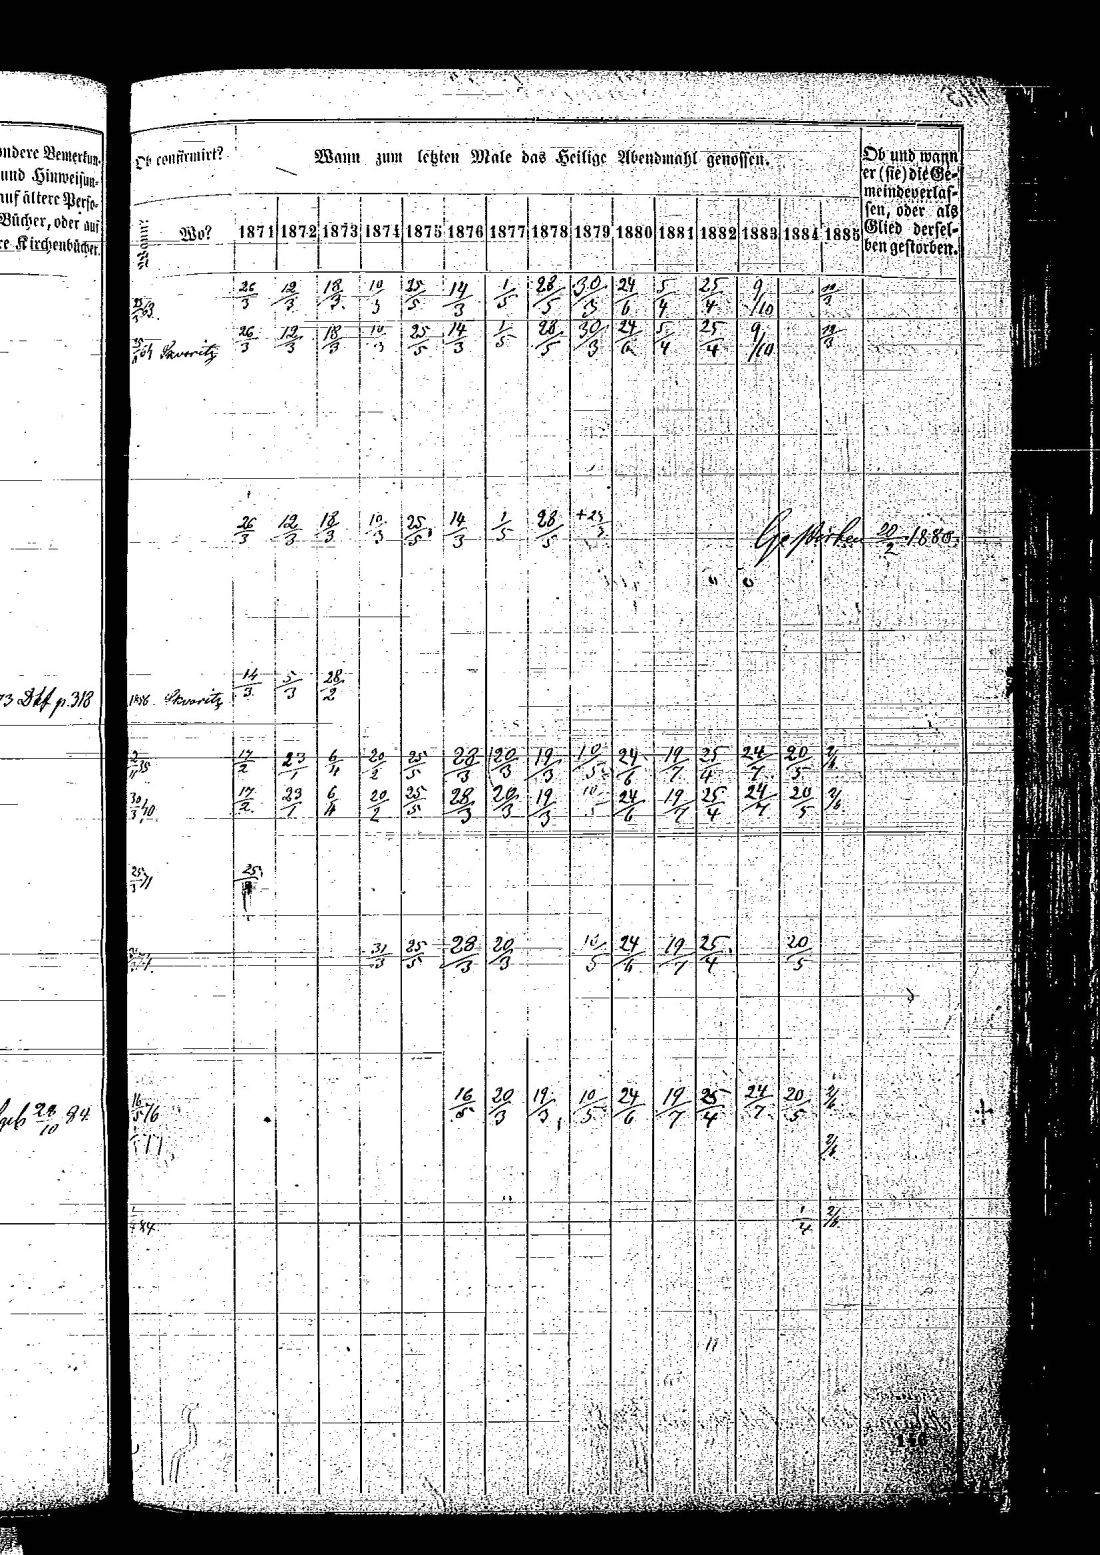 ondere Bemerkun-
und Hinweisun-
auf ältere Perso-
Bücher, oder auf
re Kirchenbücher.
Ob confirmirt?
Wann zum letzten Male das Heilige Abendmahl genossen.
Ob und wann
er (sie) die Ge-
meinde verlas-
sen, oder als
Glied dersel-
ben gestorben.
Wann? Wo? 1871 1872 1873 1874 1875 1876 1877 1878 1879 1880 1881 1882 1883 1884 1885
26/3 12/3 18/3 10/3 25/5 14/3 1/5 28/5 30/3 24/6 5/4 25/4 9/10
Skworitz 26/3 12/3 18/3 10/3 25/5 14/3 1/5 28/5 30/3 24/6 5/4 25/4 9/10
26/3 12/3 18/3 10/3 25/5 14/3 1/5 28/5 Gestorben 20/2 1880.
73 p. 318 Skworitz 14/3 5/3 28/2
17/2 23/1 6/4 20/2 25/5 28/3 20/3 19/3 10/5 24/6 19/7 25/4 24/7 20/5 2/6
30/3 40 17/2 23/1 6/4 20/2 25/5 28/3 20/3 19/3 10/5 24/6 19/7 25/4 24/7 20/5 2/6
25/3 71 25
31/3 25/5 28/3 20/3 10/5 24/6 19/7 25/4 20/5
geb 28/10 84. 16/5 76 16/5 20/3 19/3 10/5 24/6 19/7 25/4 24/7 20/5 2/6
2/6
84 1/4 2/6